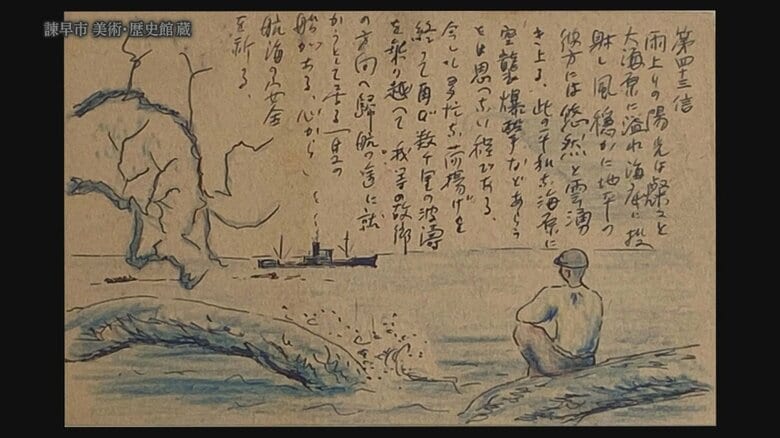 諫早市 美術・歴史館 蔵
第四十三信
雨上りの陽光は燦々と
大海原に溢れ海底に投
射し風穏かに地平の
彼方には悠然と雲湧
き上る、此の平和な海原に
空襲爆撃などあらう
とは思へない程である、
今しも多忙な荷揚げを
終って再び数千里の波濤
を乗り越へて我等の故郷
の方向へ歸航の途に就
かうとして居る一隻の
船がある、心から
航海の安全
を祈る